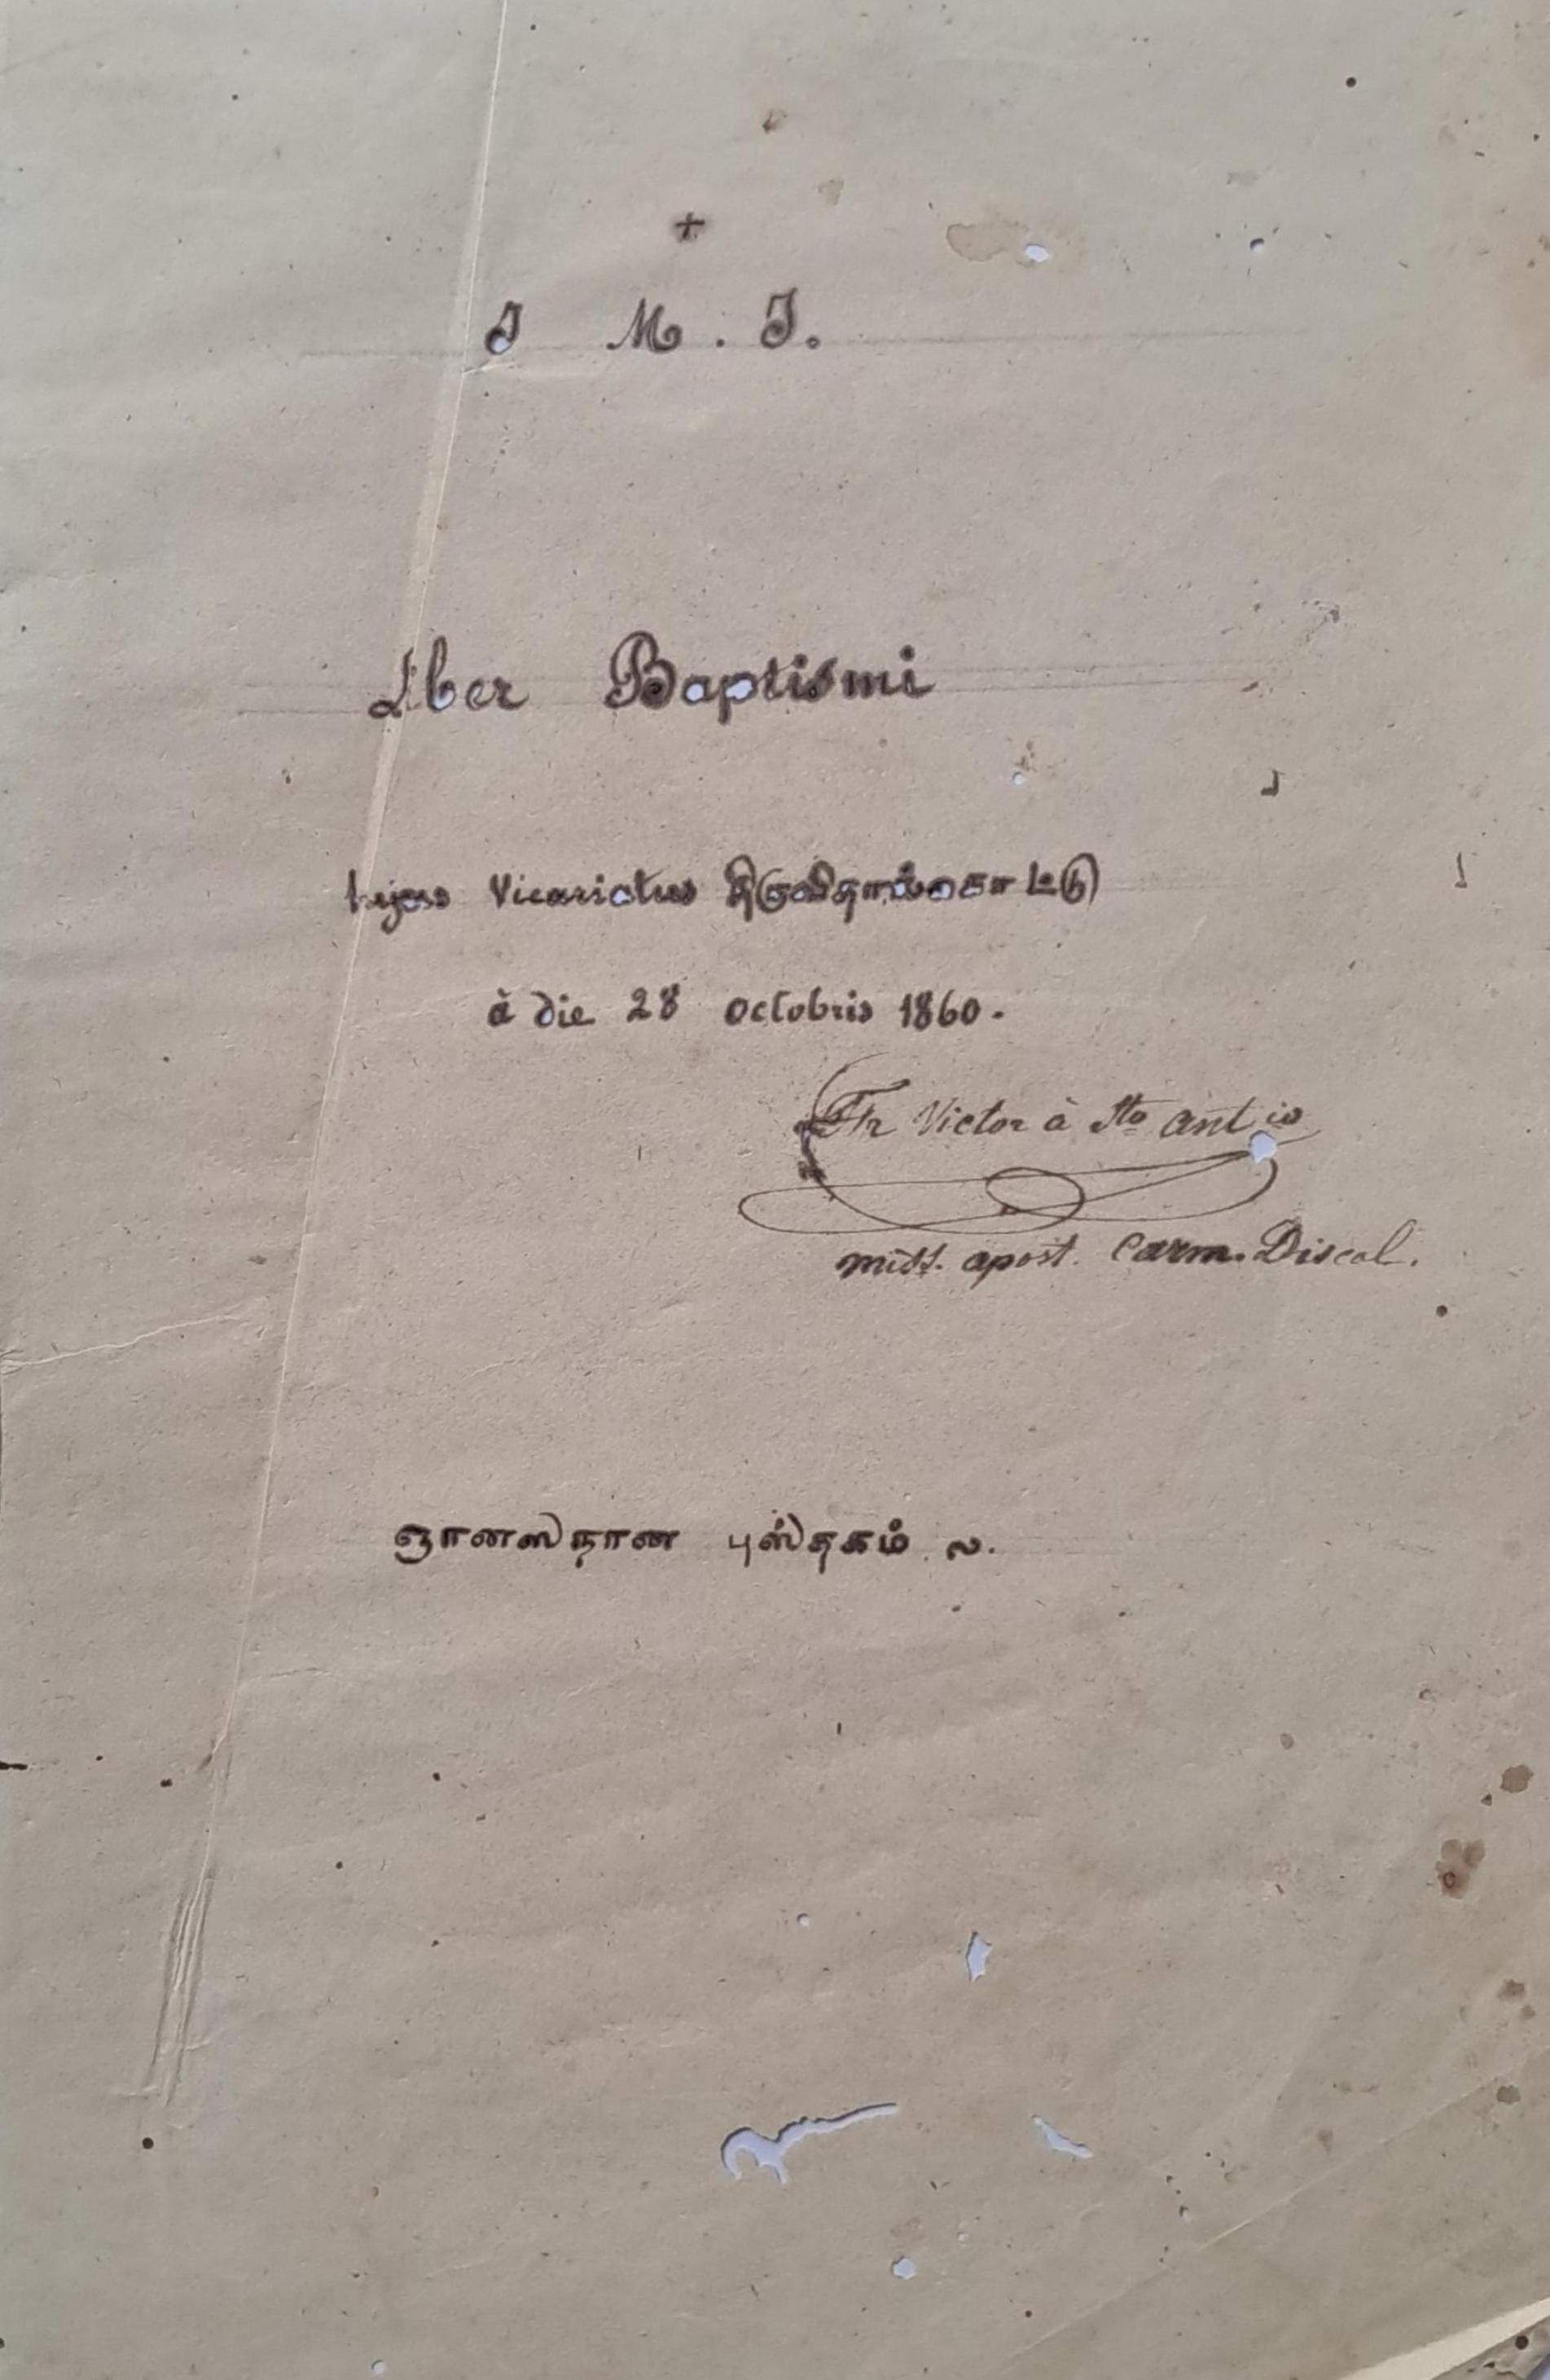 +
J M . J.
Liber Baptismi
hujus Vicariatus திருவிதாங்கோட்டு
à die 28 Octobris 1860.
Fr Victor à Sto Antio
miss. apost. Carm. Discal.
ஞானஸ்நான புஸ்தகம்